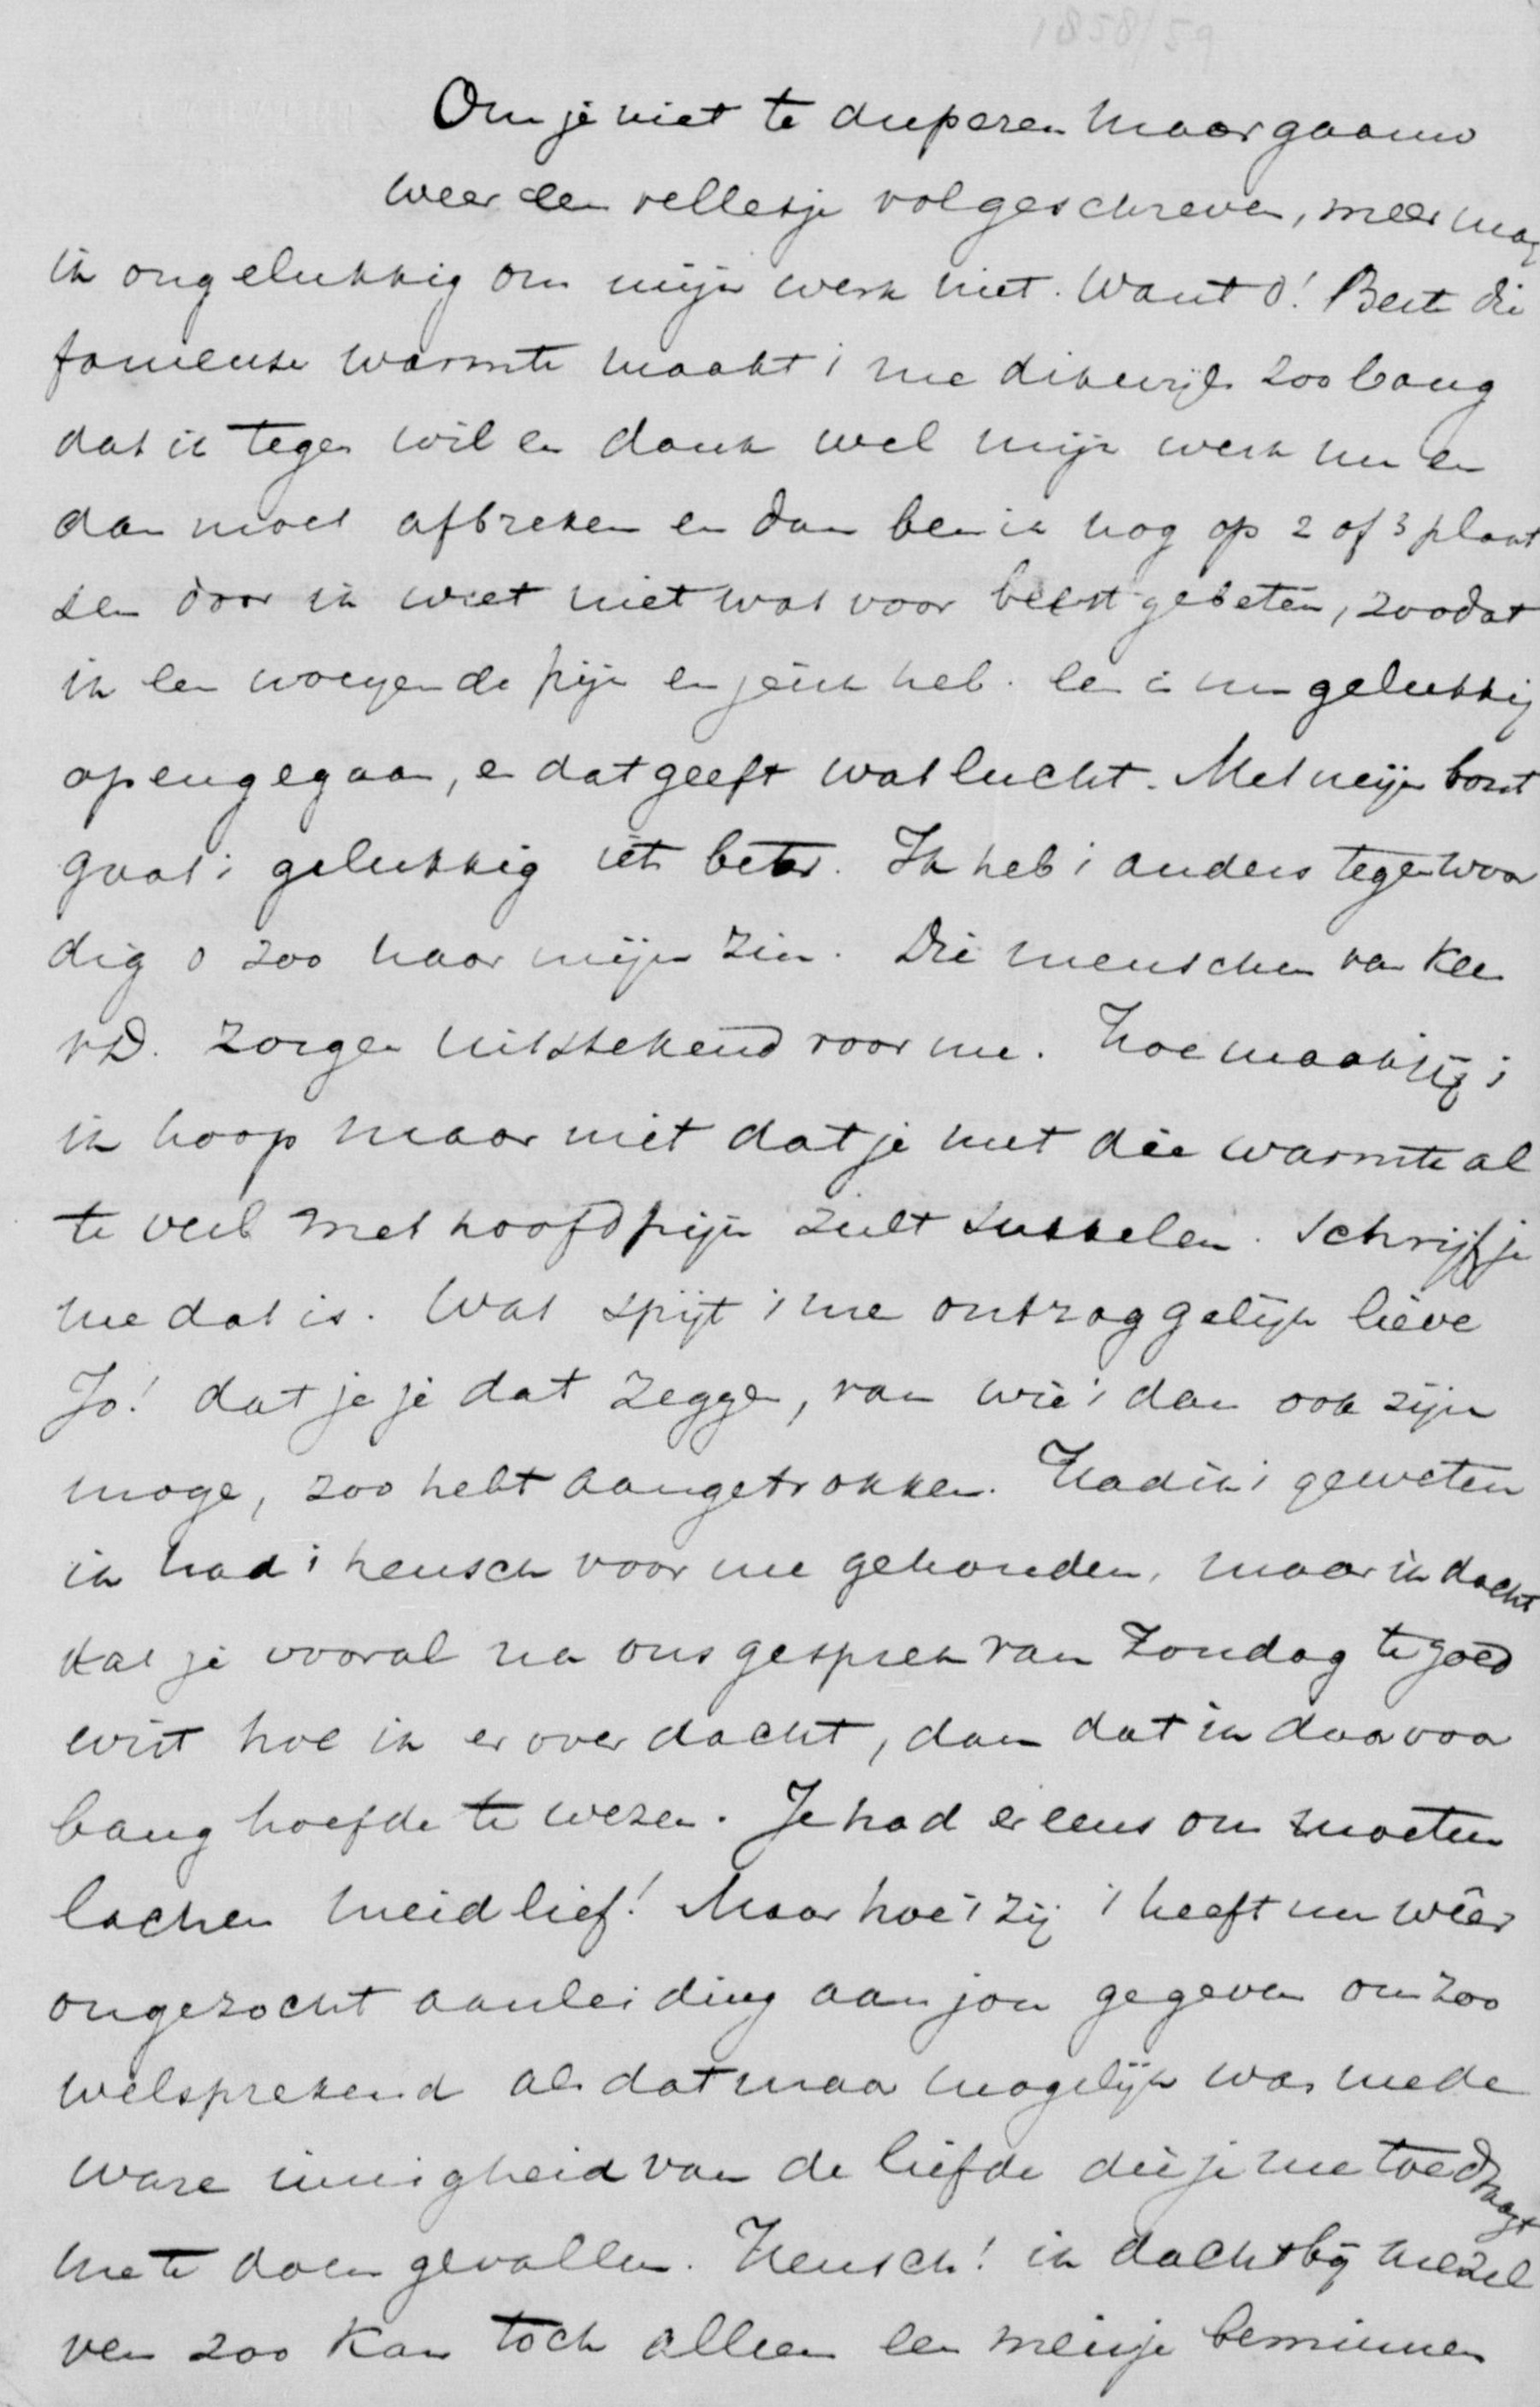 Om je niet te duperen maar gaauw
weer een velletje volgeschreven, meer mag
ik ongelukkig om mijn werk niet. Want o! Bert die
fameuse warmte maakt i me dikwijls zoo bang
dat ik tegen wil en dank wel mijn werk nu en
dan moet afbreken en dan ben ik nog op 2 of 3 plaat
sen door ik weet niet wat voor beest gebeten, zoodat
ik een woeyende pijn en jeuk heb. een is nu gelukkig
opengegaan, en dat geeft wat lucht. Met mijn borst
gaat i gelukkig iets beter. Ik heb i anders tegenwoor
dig o zoo naar mijn zin. Die menschen van Klee
v.D. zorgen uitstekend voor me. Hoe maak jij i
ik hoop maar niet dat je met die warmte al
te veel met hoofdpijn zult sukkelen. Schrijf je
me dat is. Wat spijt i me ontzaggelijk lieve
Jo! dat je je dat zeggen, van wie i dan ook zijn
moge, zoo hebt aangetrokken. Had ik i geweten
ik had i heusch voor me gehouden, maar ik dacht
dat je vooral na ons gesprek van Zondag te goed
wist hoe ik er over dacht, dan dat ik daarvoor
bang hoefde te wezen. Je had er eens om moeten
lachen meid lief! Maar hoe i zij i heeft nu wêer
ongezocht aanleiding aan jou gegeven om zoo
welsprekend als dat maar mogelijk was me de
ware innigheid van de liefde die je me toedraagt
me te doen gevallen. Heusch! ik dacht bij mezel
ven zoo kan toch alleen een meisje beminnen